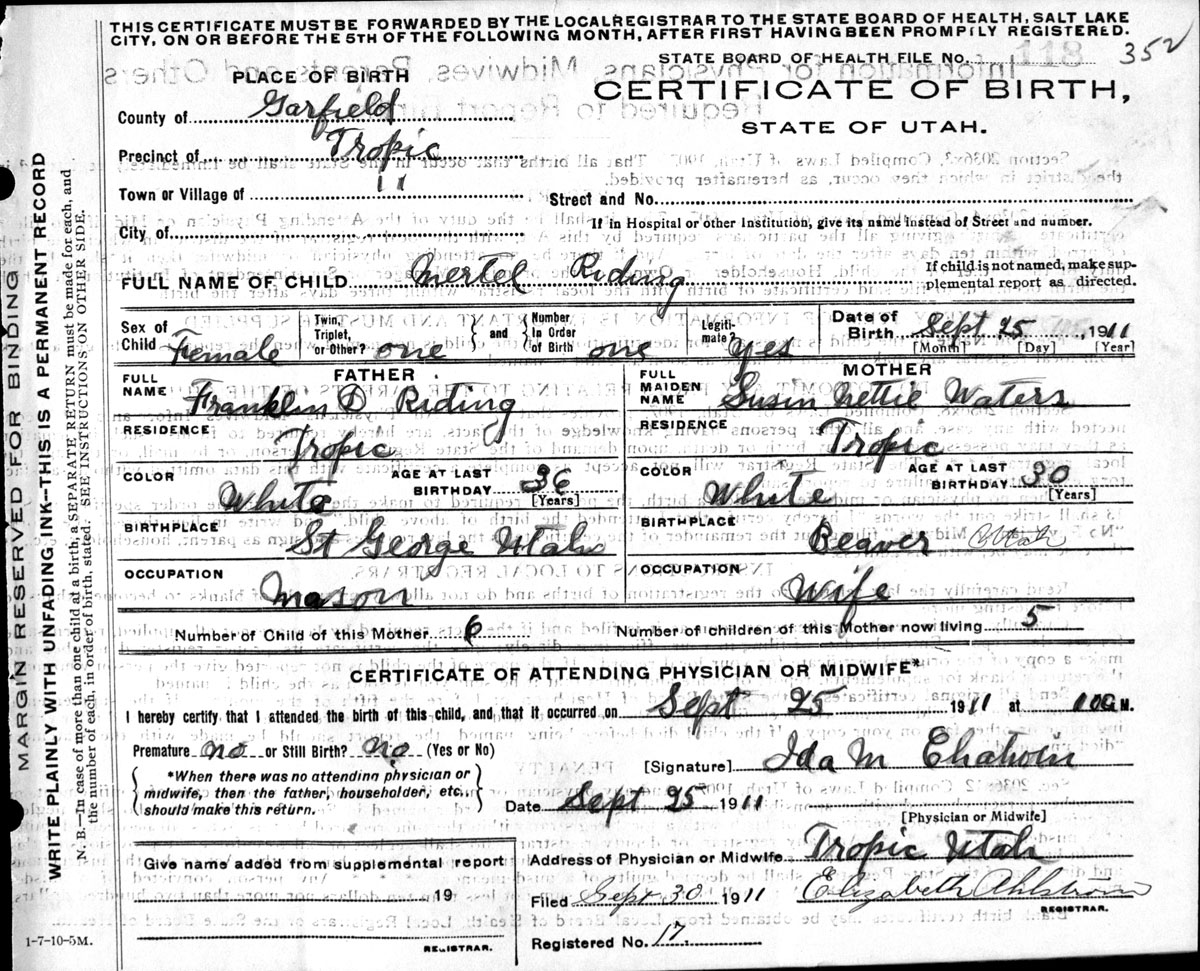 THIS CERTIFICATE MUST BE FORWARDED BY THE LOCAL REGISTRAR TO THE STATE BOARD OF HEALTH, SALT LAKE
CITY, ON OR BEFORE THE 5TH OF THE FOLLOWING MONTH, AFTER FIRST HAVING BEEN PROMPTLY REGISTERED.
STATE BOARD OF HEALTH FILE NO. 118 352
PLACE OF BIRTH
CERTIFICATE OF BIRTH,
STATE OF UTAH.
County of Garfield
Precinct of Tropic
Town or Village of 11
Street and No.
City of
If in Hospital or other Institution, give its name instead of Street and number.
FULL NAME OF CHILD Mertel Riding
If child is not named, make sup-
plemental report as directed.
Sex of Child Female
Twin, Triplet, or Other? one
and
Number, In Order of Birth one
Legiti-mate? yes
Date of Birth Sept 25, 1911
[Month] [Day] [Year]
FATHER
FULL NAME Franklin D Riding
RESIDENCE
Tropic
COLOR White
AGE AT LAST BIRTHDAY 36
[Years]
BIRTHPLACE
St George Utah
OCCUPATION
Mason
MOTHER
FULL MAIDEN NAME Susin Nettie Waters
RESIDENCE
Tropic
COLOR White
AGE AT LAST BIRTHDAY 30
[Years]
BIRTHPLACE
Beaver Utah
OCCUPATION
Wife
Number of Child of this Mother 6
Number of children of this Mother now living 5
CERTIFICATE OF ATTENDING PHYSICIAN OR MIDWIFE*
I hereby certify that I attended the birth of this child, and that it occurred on Sept 25 1911 at 10 a M.
Premature no or Still Birth? no (Yes or No)
*When there was no attending physician or
midwife, then the father, householder, etc.,
should make this return.
[Signature] Ida M
Date Sept 25 1911
[Physician or Midwife]
Give name added from supplemental report
19
REGISTRAR.
Address of Physician or Midwife Tropic Utah
Filed Sept 30 1911 Elizabeth Ahlstrom
REGISTRAR.
Registered No. 17
1-7-10-5M.
MARGIN RESERVED FOR BINDING
WRITE PLAINLY WITH UNFADING INK--THIS IS A PERMANENT RECORD
N. B.--In case of more than one child at a birth, a SEPARATE RETURN must be made for each, and
the number of each, in order of birth, stated. SEE INSTRUCTIONS ON OTHER SIDE.